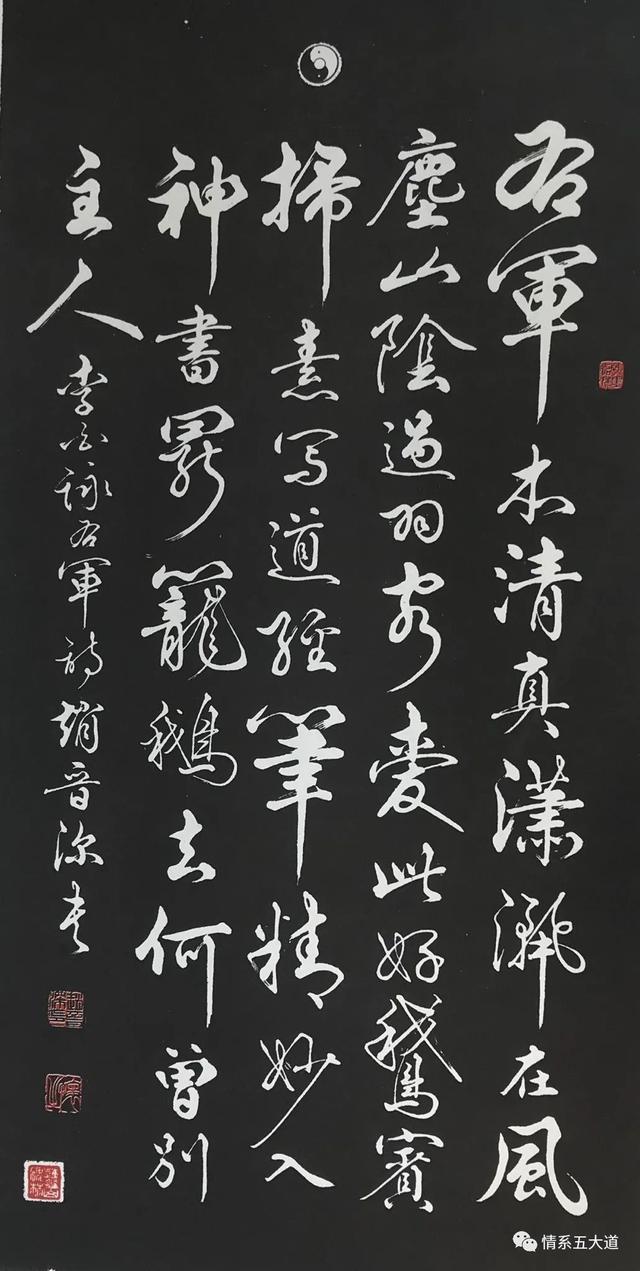 右軍本清真瀟灑在風
塵山陰過羽客愛此好鵞賓
掃素写道經筆精妙入
神書罷籠鵝去何曾別
主人 李白詠右軍詩 趙晋深书
情系五大道